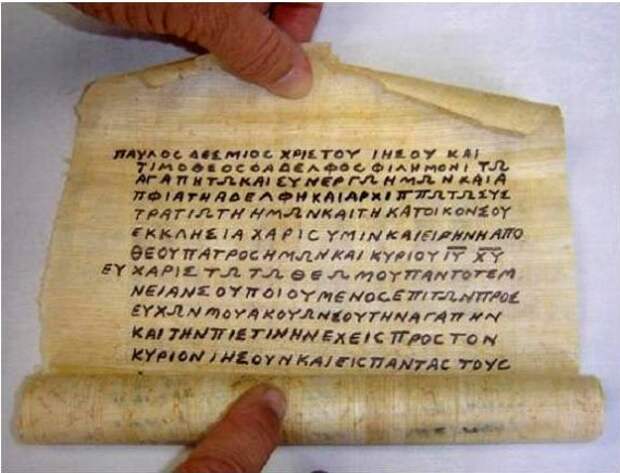 ΠΑΥΛΟΣ ΔΕΣΜΙΟΣ ΧΡΙΣΤΟΥ ΙΗΣΟΥ ΚΑΙ
ΤΙΜΟΘΕΟΣΟΑΔΕΛΦΟΣΦΙΛΗΜΟΝΙ ΤΩ
ΑΓΑΠΗΤΩΚΑΙΣΥΝΕΡΓΩΗΜΩΝΚΑΙΑ
ΠΦΙΑΤΗΑΔΕΛΦΗΚΑΙΑΡΧΙΠΠΩΤΩΣΥΣ
ΤΡΑΤΙΩΤΗΗΜΩΝΚΑΙΤΗΚΑΤΟΙΚΟΝΣΟΥ
ΕΚΚΛΗΣΙΑ ΧΑΡΙΣ ΥΜΙΝ ΚΑΙΕΙΡΗΝΗΑΠΟ
ΘΕΟΥΠΑΤΡΟΣΗΜΩΝΚΑΙ ΚΥΡΙΟΥ Ι̅Υ̅ Χ̅Υ̅
ΕΥΧΑΡΙΣΤΩΤΩΘΕΩΜΟΥΠΑΝΤΟΤΕΜ
ΝΕΙΑΝΣΟΥΠΟΙΟΥΜΕΝΟΣΕΠΙΤΩΝΠΡΟΣ
ΕΥΧΩΝΜΟΥΑΚΟΥΩΝΣΟΥΤΗΝΑΓΑΠΗΝ
ΚΑΙΤΗΝΠΙΣΤΙΝΗΝΕΧΕΙΣΠΡΟΣΤΟΝ
ΚΥΡΙΟΝΙΗΣΟΥΝΚΑΙΕΙΣΠΑΝΤΑΣ ΤΟΥΣ